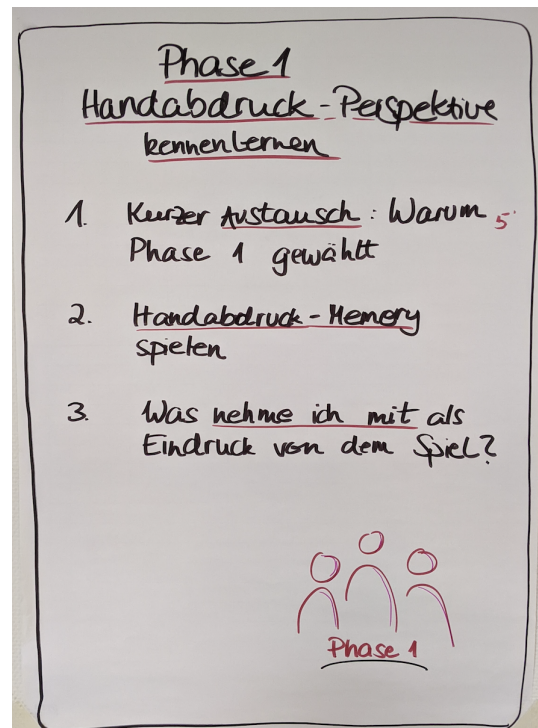 Phase 1
Handabdruck - Perspektive
kennenlernen
1. Kurzer Austausch : Warum 5'
Phase 1 gewählt
2. Handabdruck - Memory
spielen
3. Was nehme ich mit als
Eindruck von dem Spiel?
Phase 1